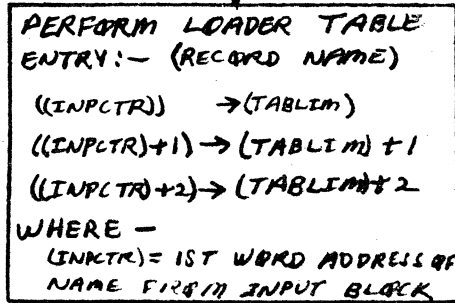 PERFORM LOADER TABLE
ENTRY:- (RECORD NAME)
((INPCTR)) →(TABLIM)
((INPCTR)+1)→(TABLIM)+1
((INPCTR)+2)→(TABLIM)+2
WHERE -
(INPCTR)= 1ST WORD ADDRESS OF
NAME FROM INPUT BLOCK